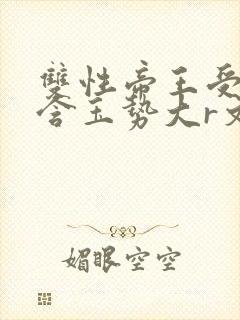 雙性帝王受
含玉勢大r文
媚眼空空